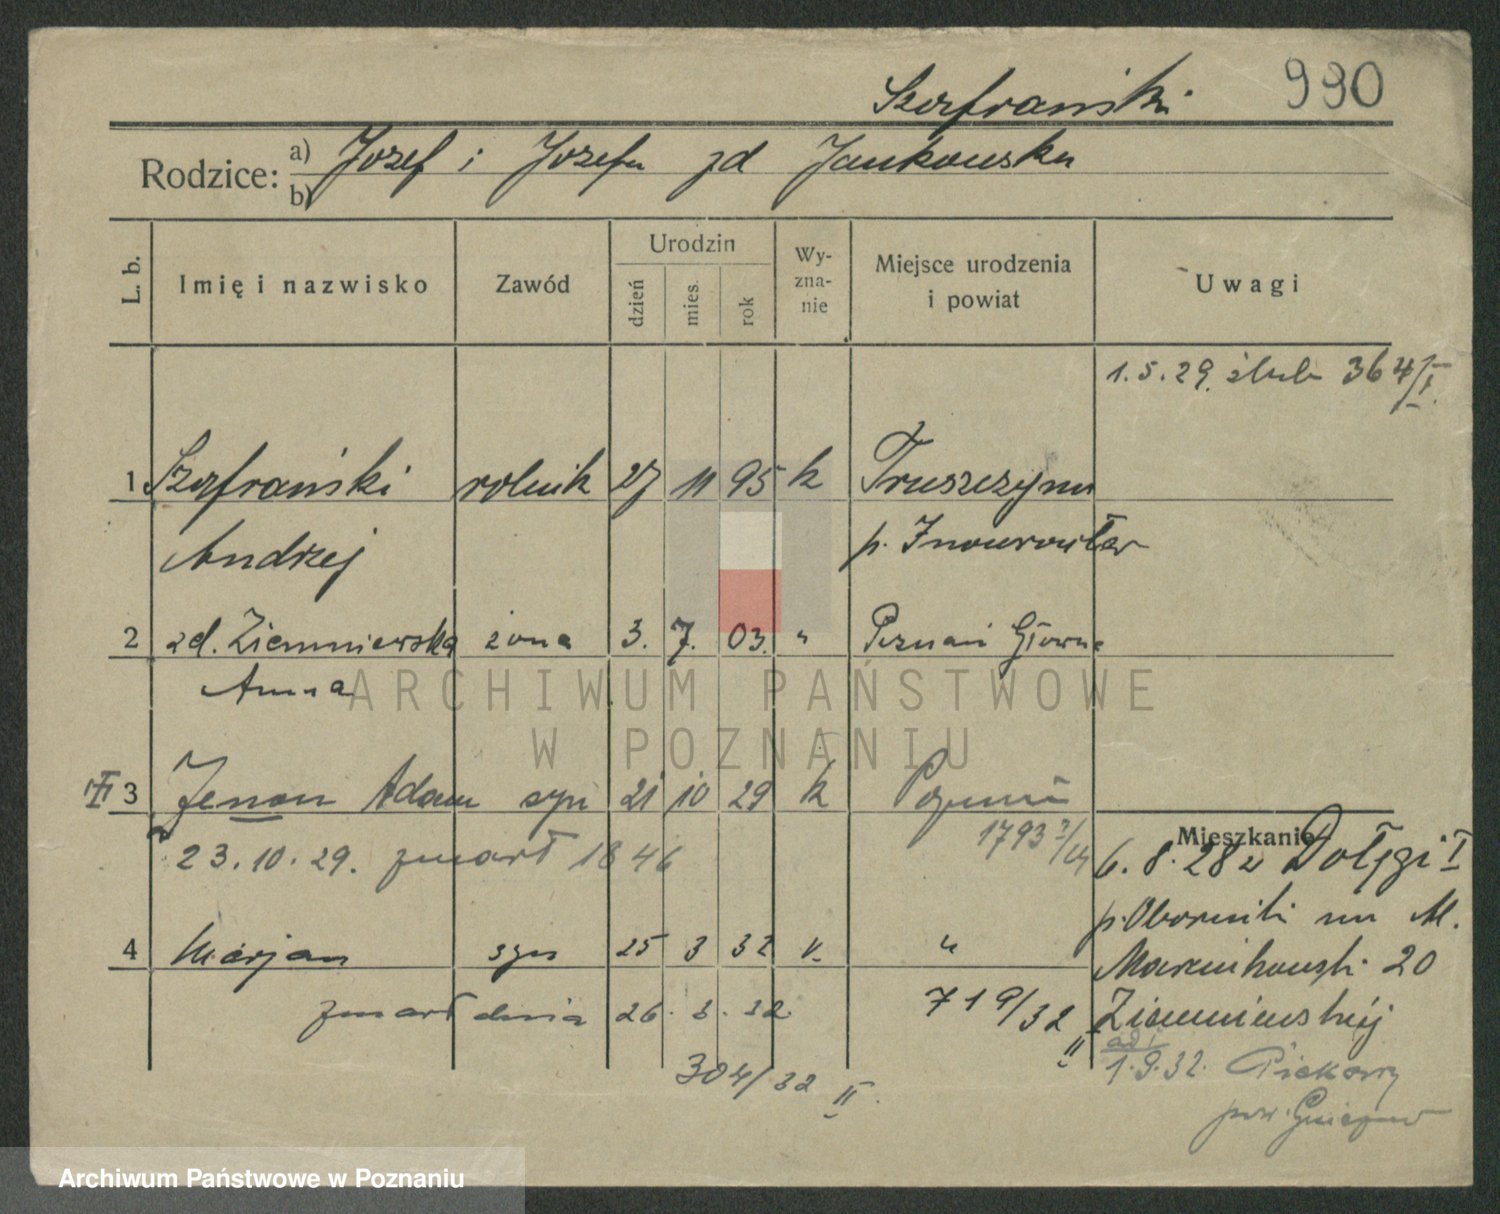 Szafrański 990
Rodzice: a) Józef i Józefa zd Jankowska
b)
L. b. Imię i nazwisko Zawód Urodzin dzień mies. rok Wy-zna-nie Miejsce urodzenia i powiat Uwagi
1.5.29. ślub 364/I.
1 Szafrański rolnik 27 11 95 k
Andrzej p. Inowrocław
2 zd. Ziemniewska żona 3. 7. 03. " Poznań Główna
Anna
ARCHIWUM PAŃSTWOWE
W POZNANIU
3 Zenon Adam syn 21 10 29 k Poznań
Mieszkanie
23.10.29. zmarł 1846 1793
6.8.28 z I
p. Oborniki na M.
4 Marjan syn 25 3 32 "
Marcinkowski 20
zmarł dnia 26. 3. 32. 719/32 II
1.9.32. Piekary
304/32 II.
pow. Gniezno
Archiwum Państwowe w Poznaniu